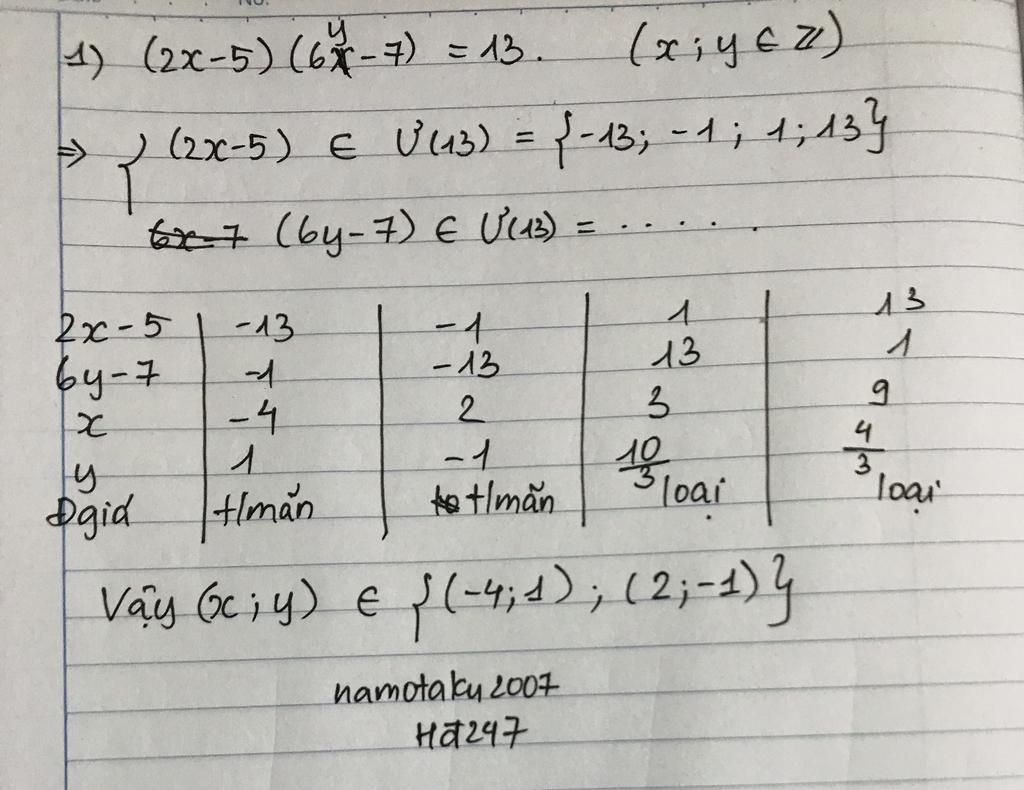 No.
1) (2x-5)(6y-7) = 13. (x; y ∈ ℤ)
⇒ { (2x-5) ∈ Ư(13) = {-13; -1; 1; 13}
6x-7 (6y-7) ∈ Ư(13) = ......
2x-5 | -13 | -1 | 1 | 13
6y-7 | -1 | -13 | 13 | 1
x | -4 | 2 | 3 | 9
y | 1 | -1 | 10/3 | 4/3
Đgiá | t/mãn | t/mãn | loại | loại
Vậy (x; y) ∈ {(-4;1); (2;-1)}
namotaku2007
Hđ247